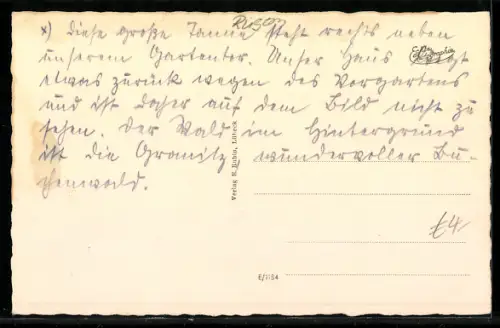 Rügen
x) Diese große Tanne steht rechts neben
unserem Gartentor. Unser Haus liegt
etwas zurück wegen des Vorgartens
und ist daher auf dem Bild nicht zu
sehen. Der Wald im Hintergrund
ist die Granitz wundervoller Bu-
chenwald.
Verlag R. Rubin, Lübeck
£4
E/1184